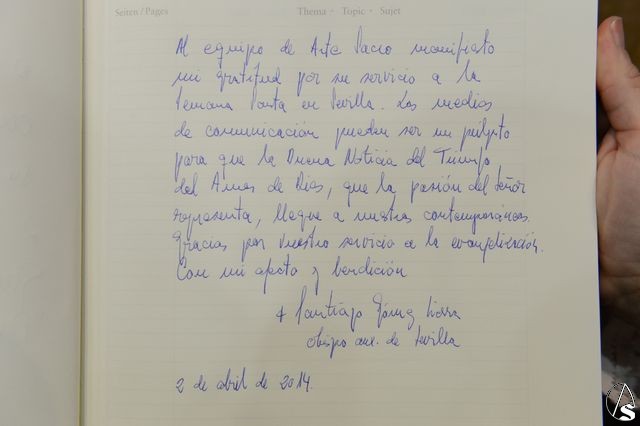 Seiten / Pages
Thema · Topic · Sujet
Al equipo de Arte Sacro manifiesto
mi gratitud por su servicio a la
Semana Santa en Sevilla. Los medios
de comunicación pueden ser un púlpito
para que la Buena Noticia del Triunfo
del Amor de Dios, que la pasión del Señor
representa, llegue a nuestros contemporáneos.
Gracias por vuestro servicio a la evangelización.
Con mi afecto y bendición
+ Santiago Gómez Sierra
obispo aux. de Sevilla
2 de abril de 2014.